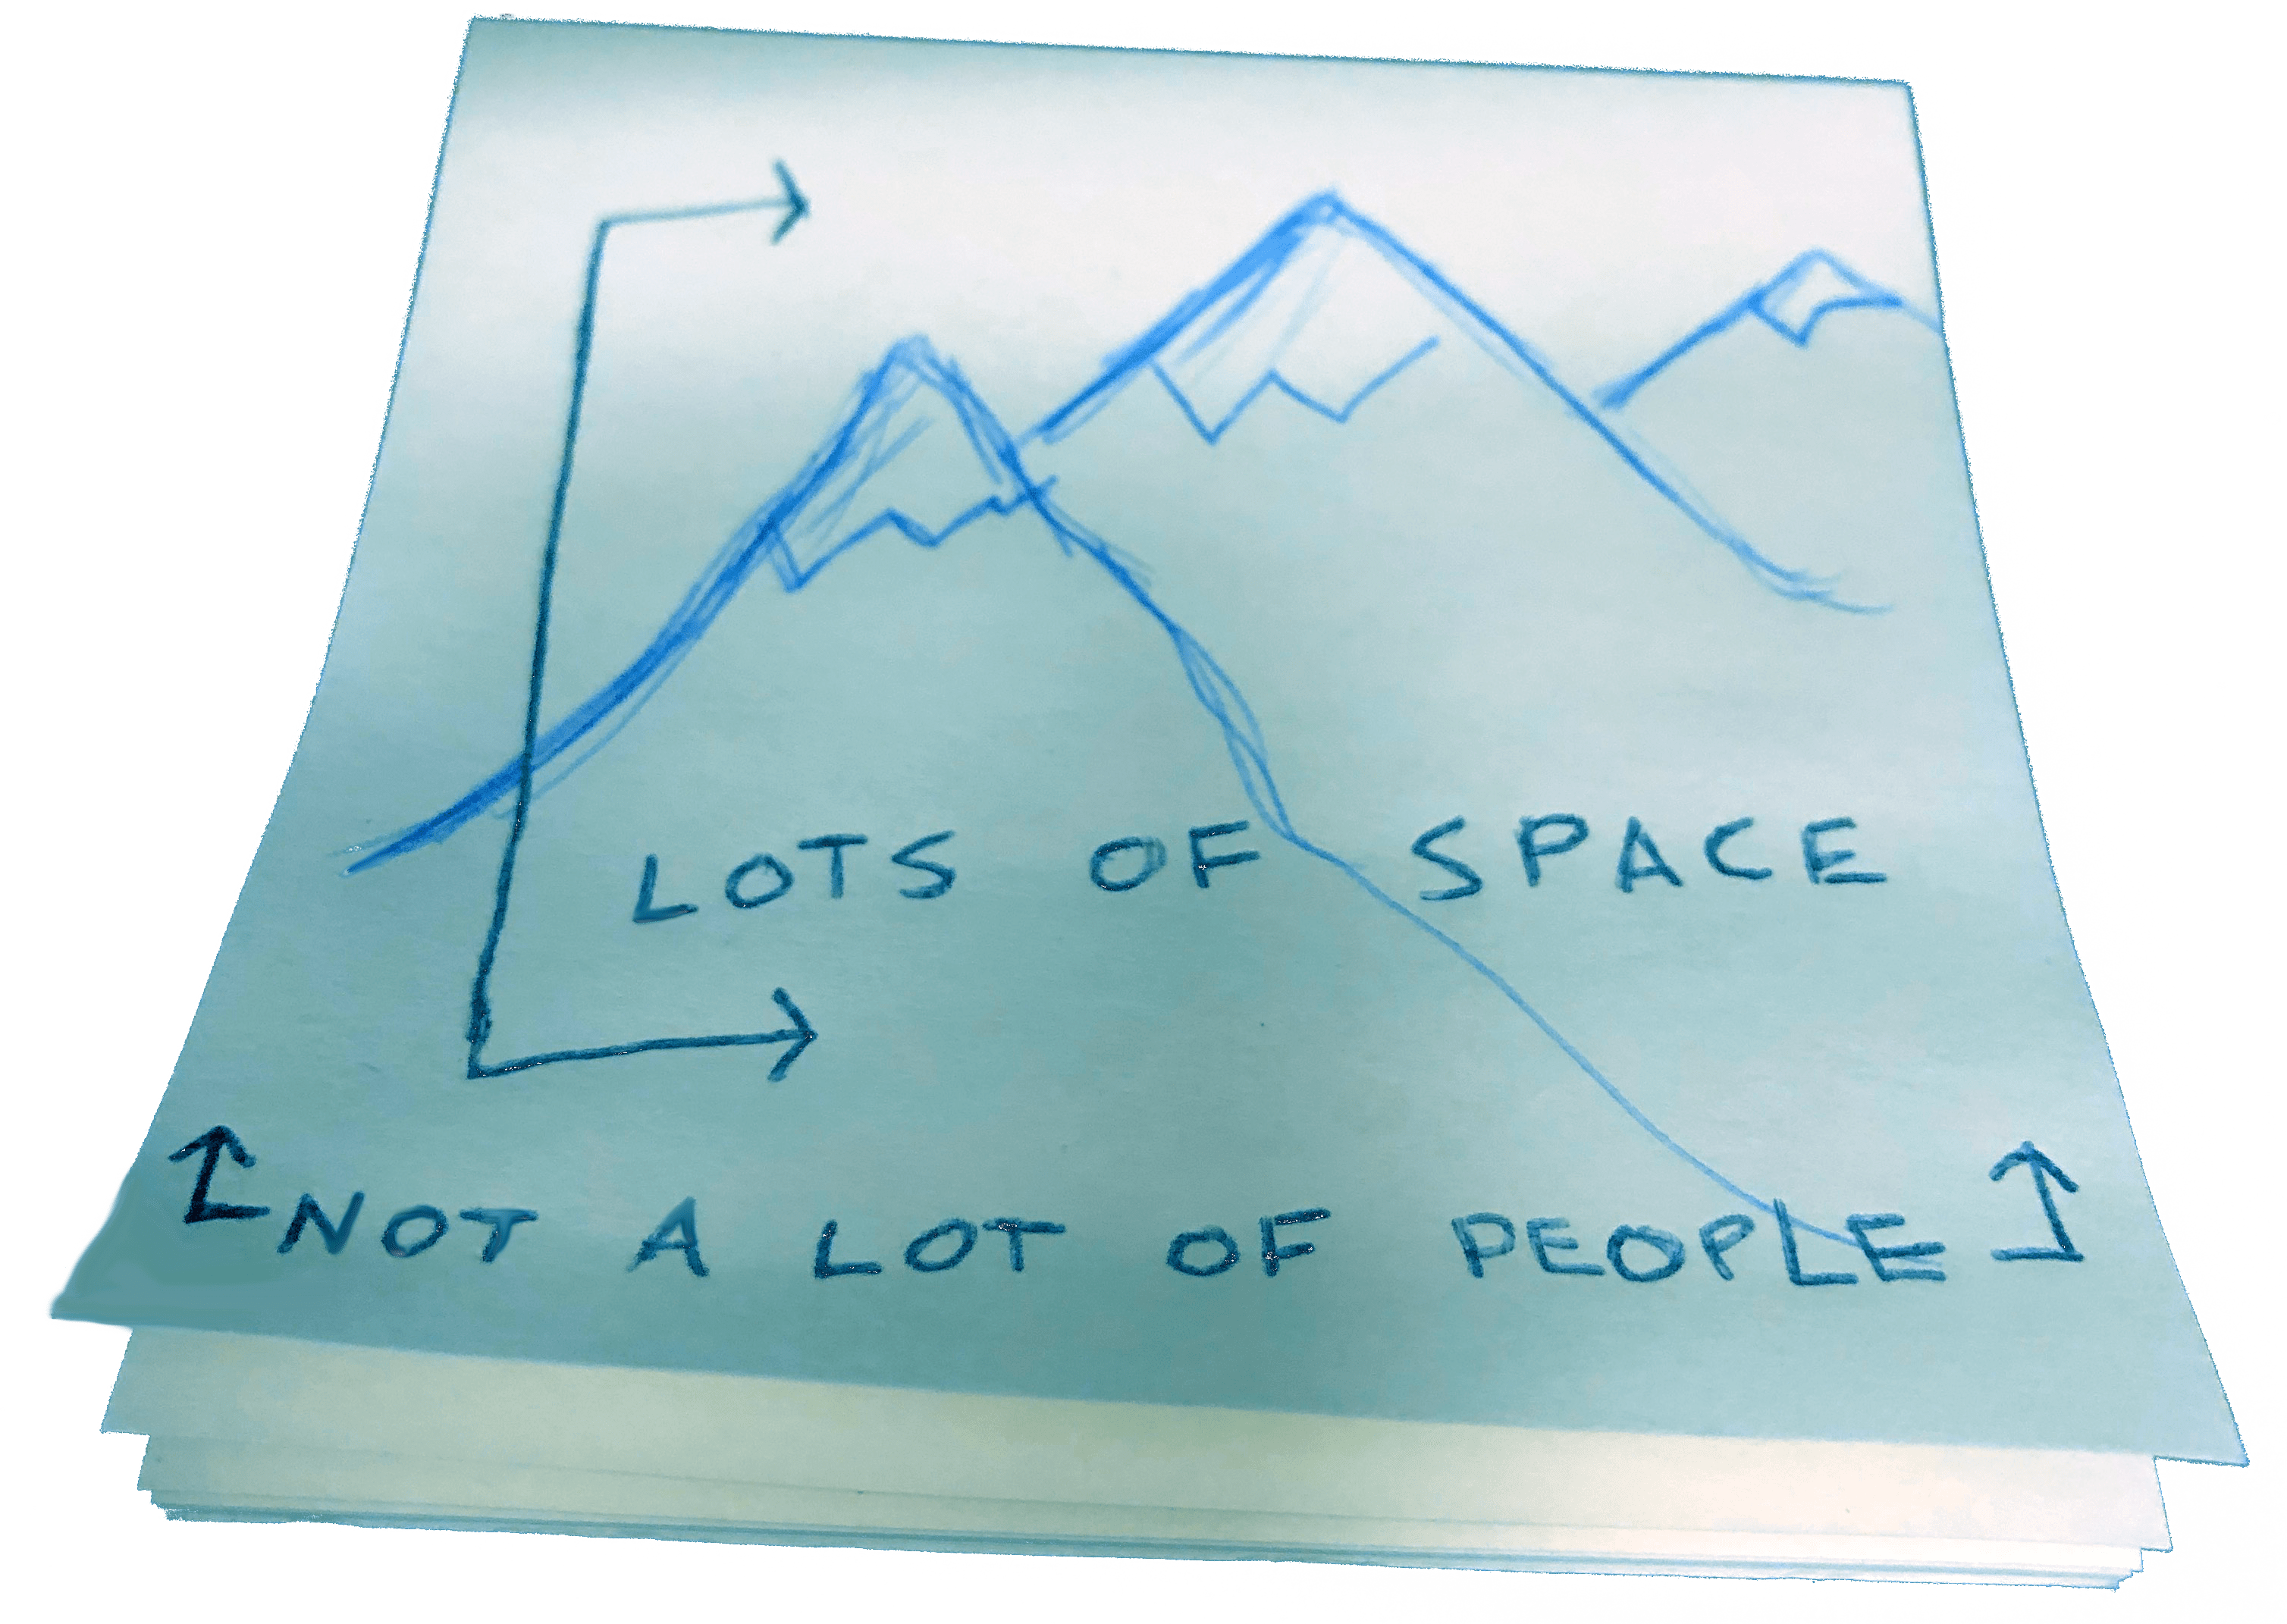 LOTS OF SPACE
NOT A LOT OF PEOPLE